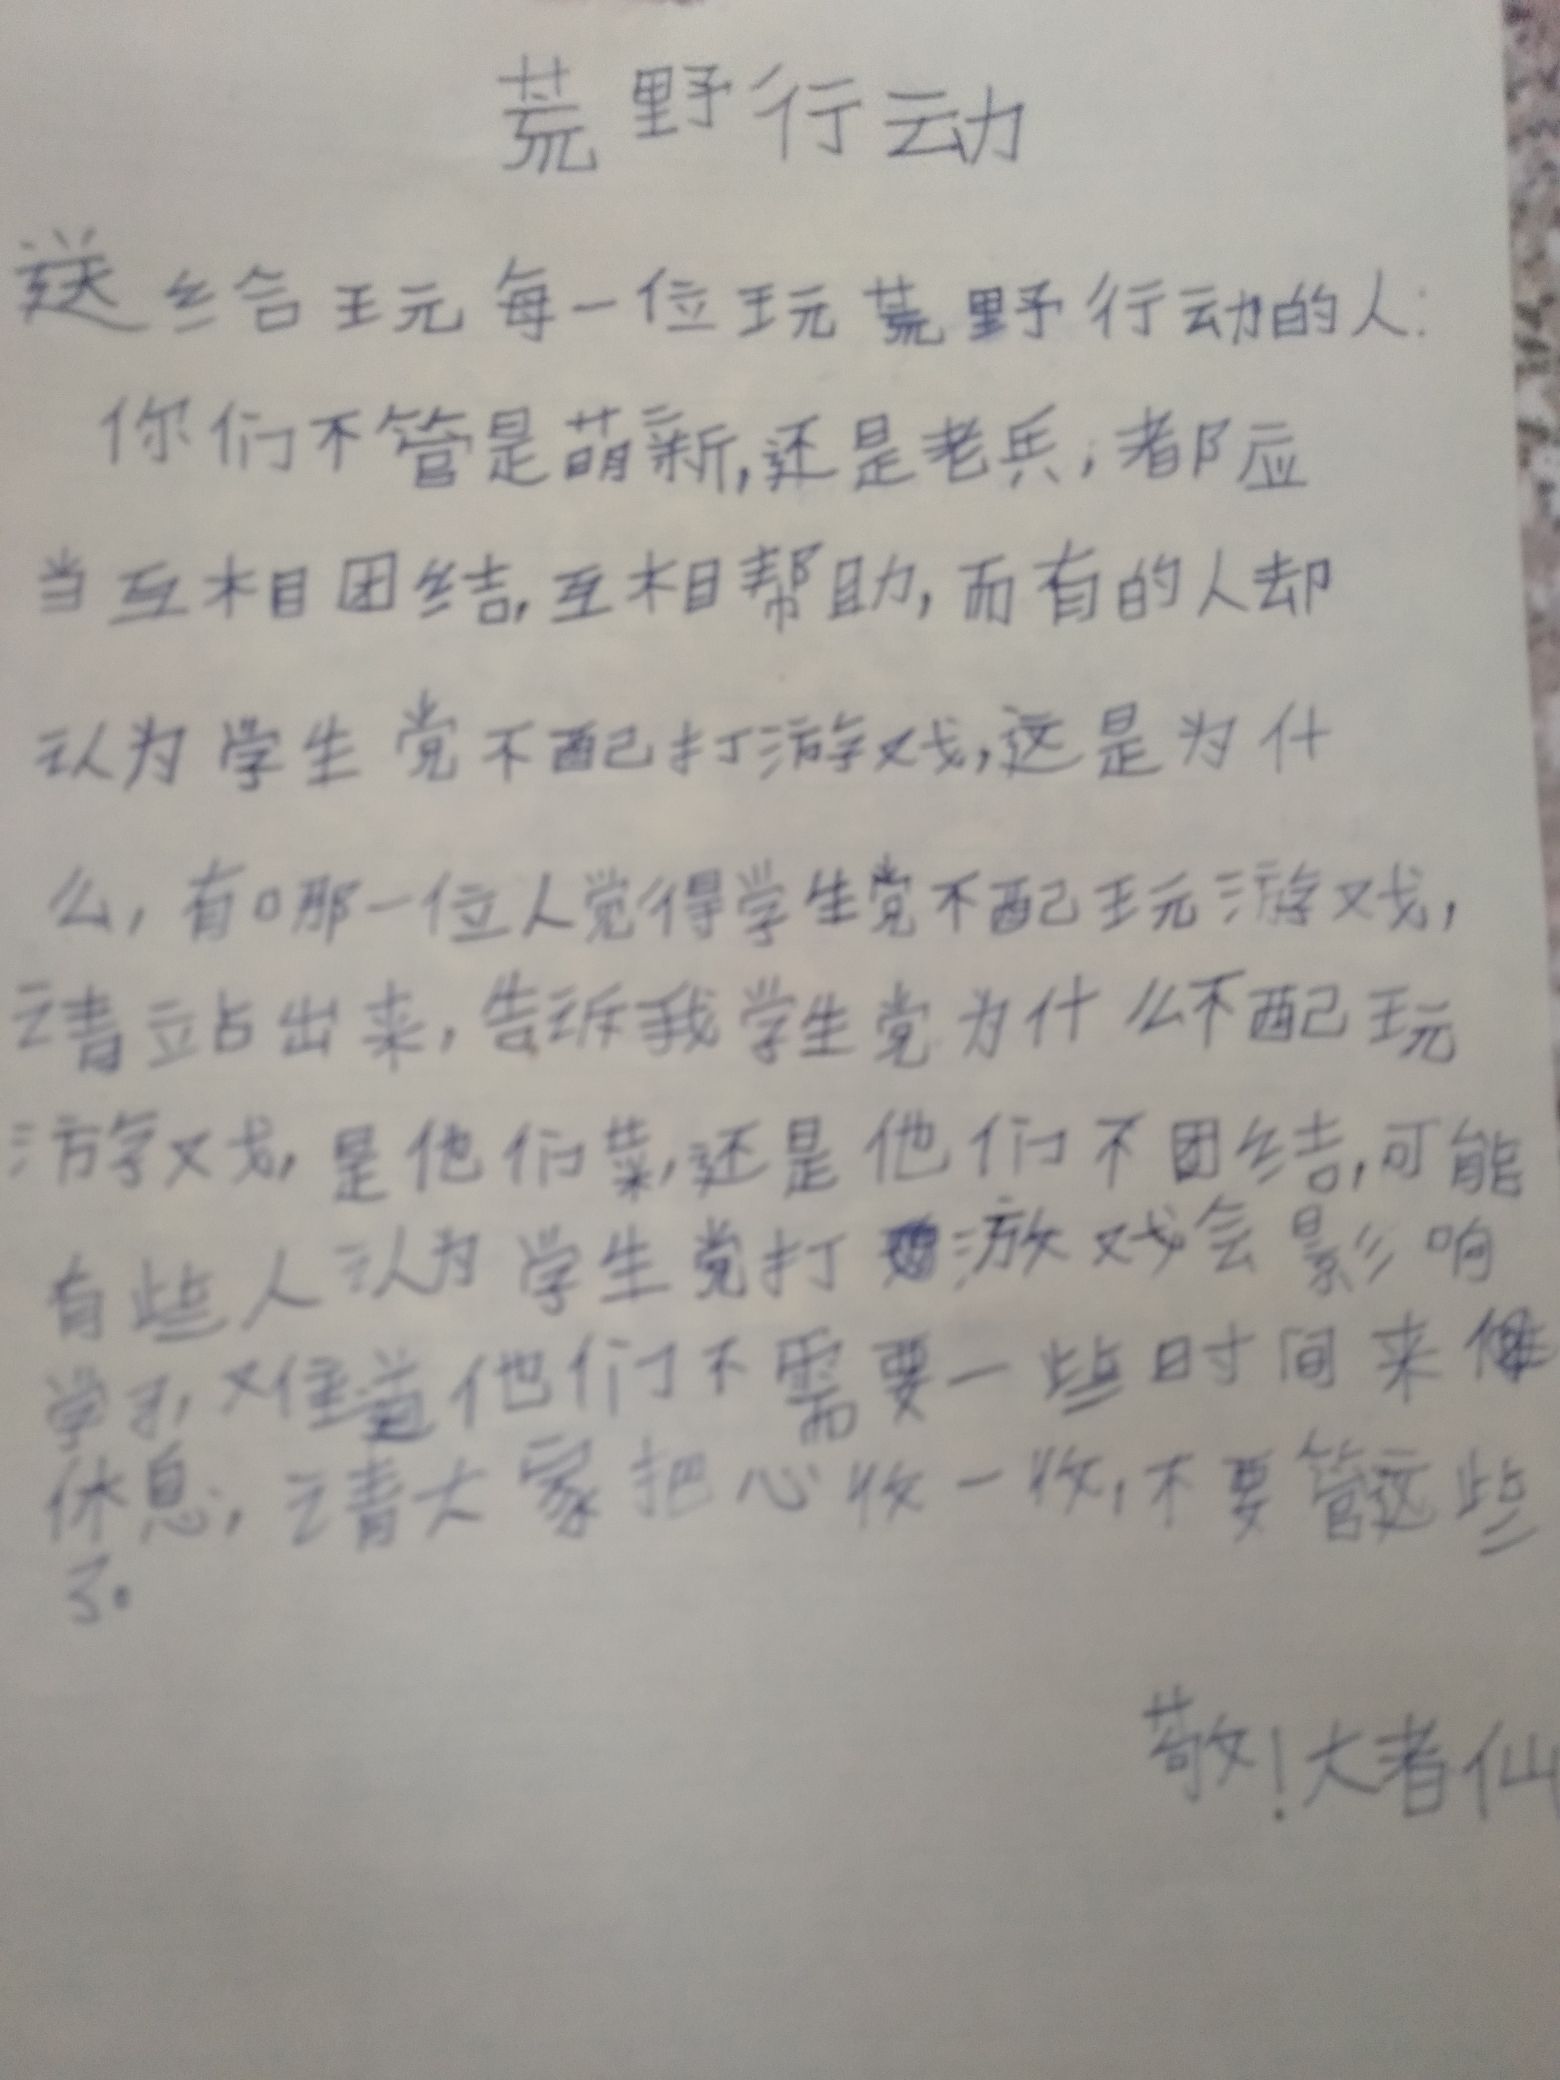 荒野行动
送给玩每一位玩荒野行动的人:
你们不管是萌新,还是老兵;都应
当互相团结,互相帮助,而有的人却
认为学生党不配打游戏,这是为什
么,有哪一位人觉得学生党不配玩游戏,
请站出来,告诉我学生党为什么不配玩
游戏,是他们菜,还是他们不团结,可能
有些人认为学生党打游戏会影响
学习,难道他们不需要一些时间来
休息,请大家把心收一收,不要管这些
了。
敬!大者仙